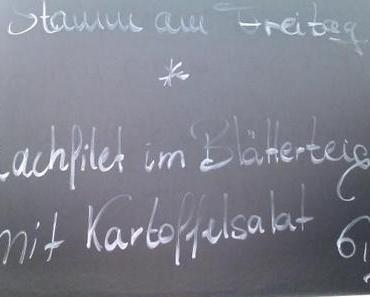 Stamm am Freitag
*
Lachfilet im Blätterteig
mit Kartoffelsalat 6,